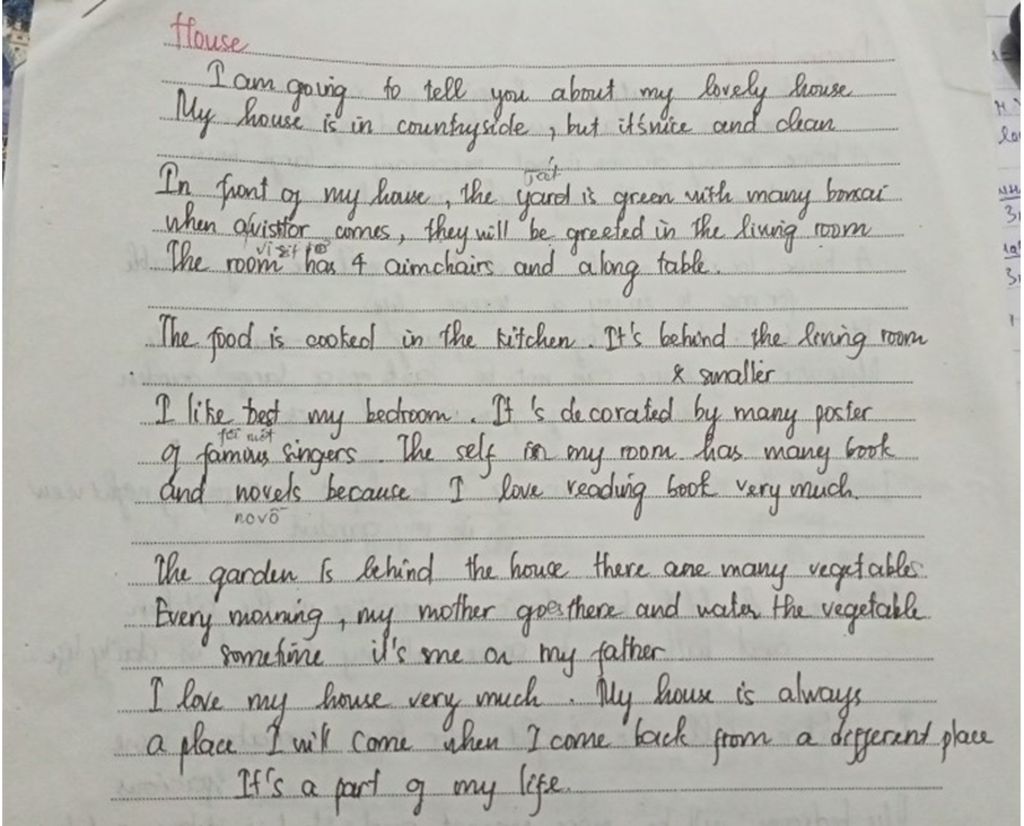 House
I am going to tell you about my lovely house
My house is in countryside, but it's nice and clean
In front of my house, the yard is green with many bonsai
when a visittor comes, they will be greeted in the living room
visit to
The room has 4 aimchairs and a long table.
The food is cooked in the kitchen. It's behind the living room
& smaller
I like best my bedroom. It's decorated by many poster
of famous singers. The self in my room has many book
and novels because I love reading book very much.
novô
The garden is behind the house there are many vegetables.
Every morning, my mother goes there and water the vegetable
sometime it's me or my father
I love my house very much. My house is always
a place I will come when I come back from a different place
It's a part of my life.